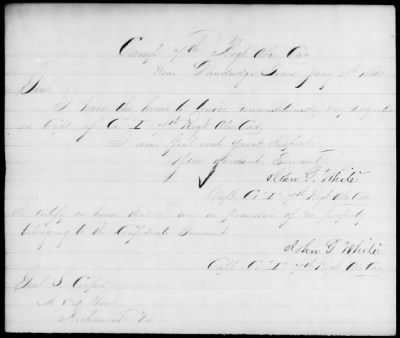 Camp 7th Regt Ala Cav
Near Dandridge Tenn Jany 1864
I have the honor to tender unconditionally my resignation
as Capt of Co "I" 7th Regt Ala Cav
I am Genl with great Respect
Your obedient Servant
John G. White
Capt Co "I" 7th Regt Ala Cav
I certify on honor that I am in possession of no property
belonging to the Confederate Government
John G White
Capt Co "I" 7th Regt Ala Cav
Genl S. Cooper
A & I Genl
Richmond Va